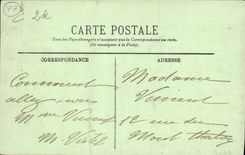 2 €
CARTE POSTALE
Tous les Pays étrangers n'acceptent pas la Correspondance au recto.
(Se renseigner à la Poste)
CORRESPONDANCE
ADRESSE
Comment
allez vous
Mme Vincent
M
Madame
Vincent
12 rue du
Mont